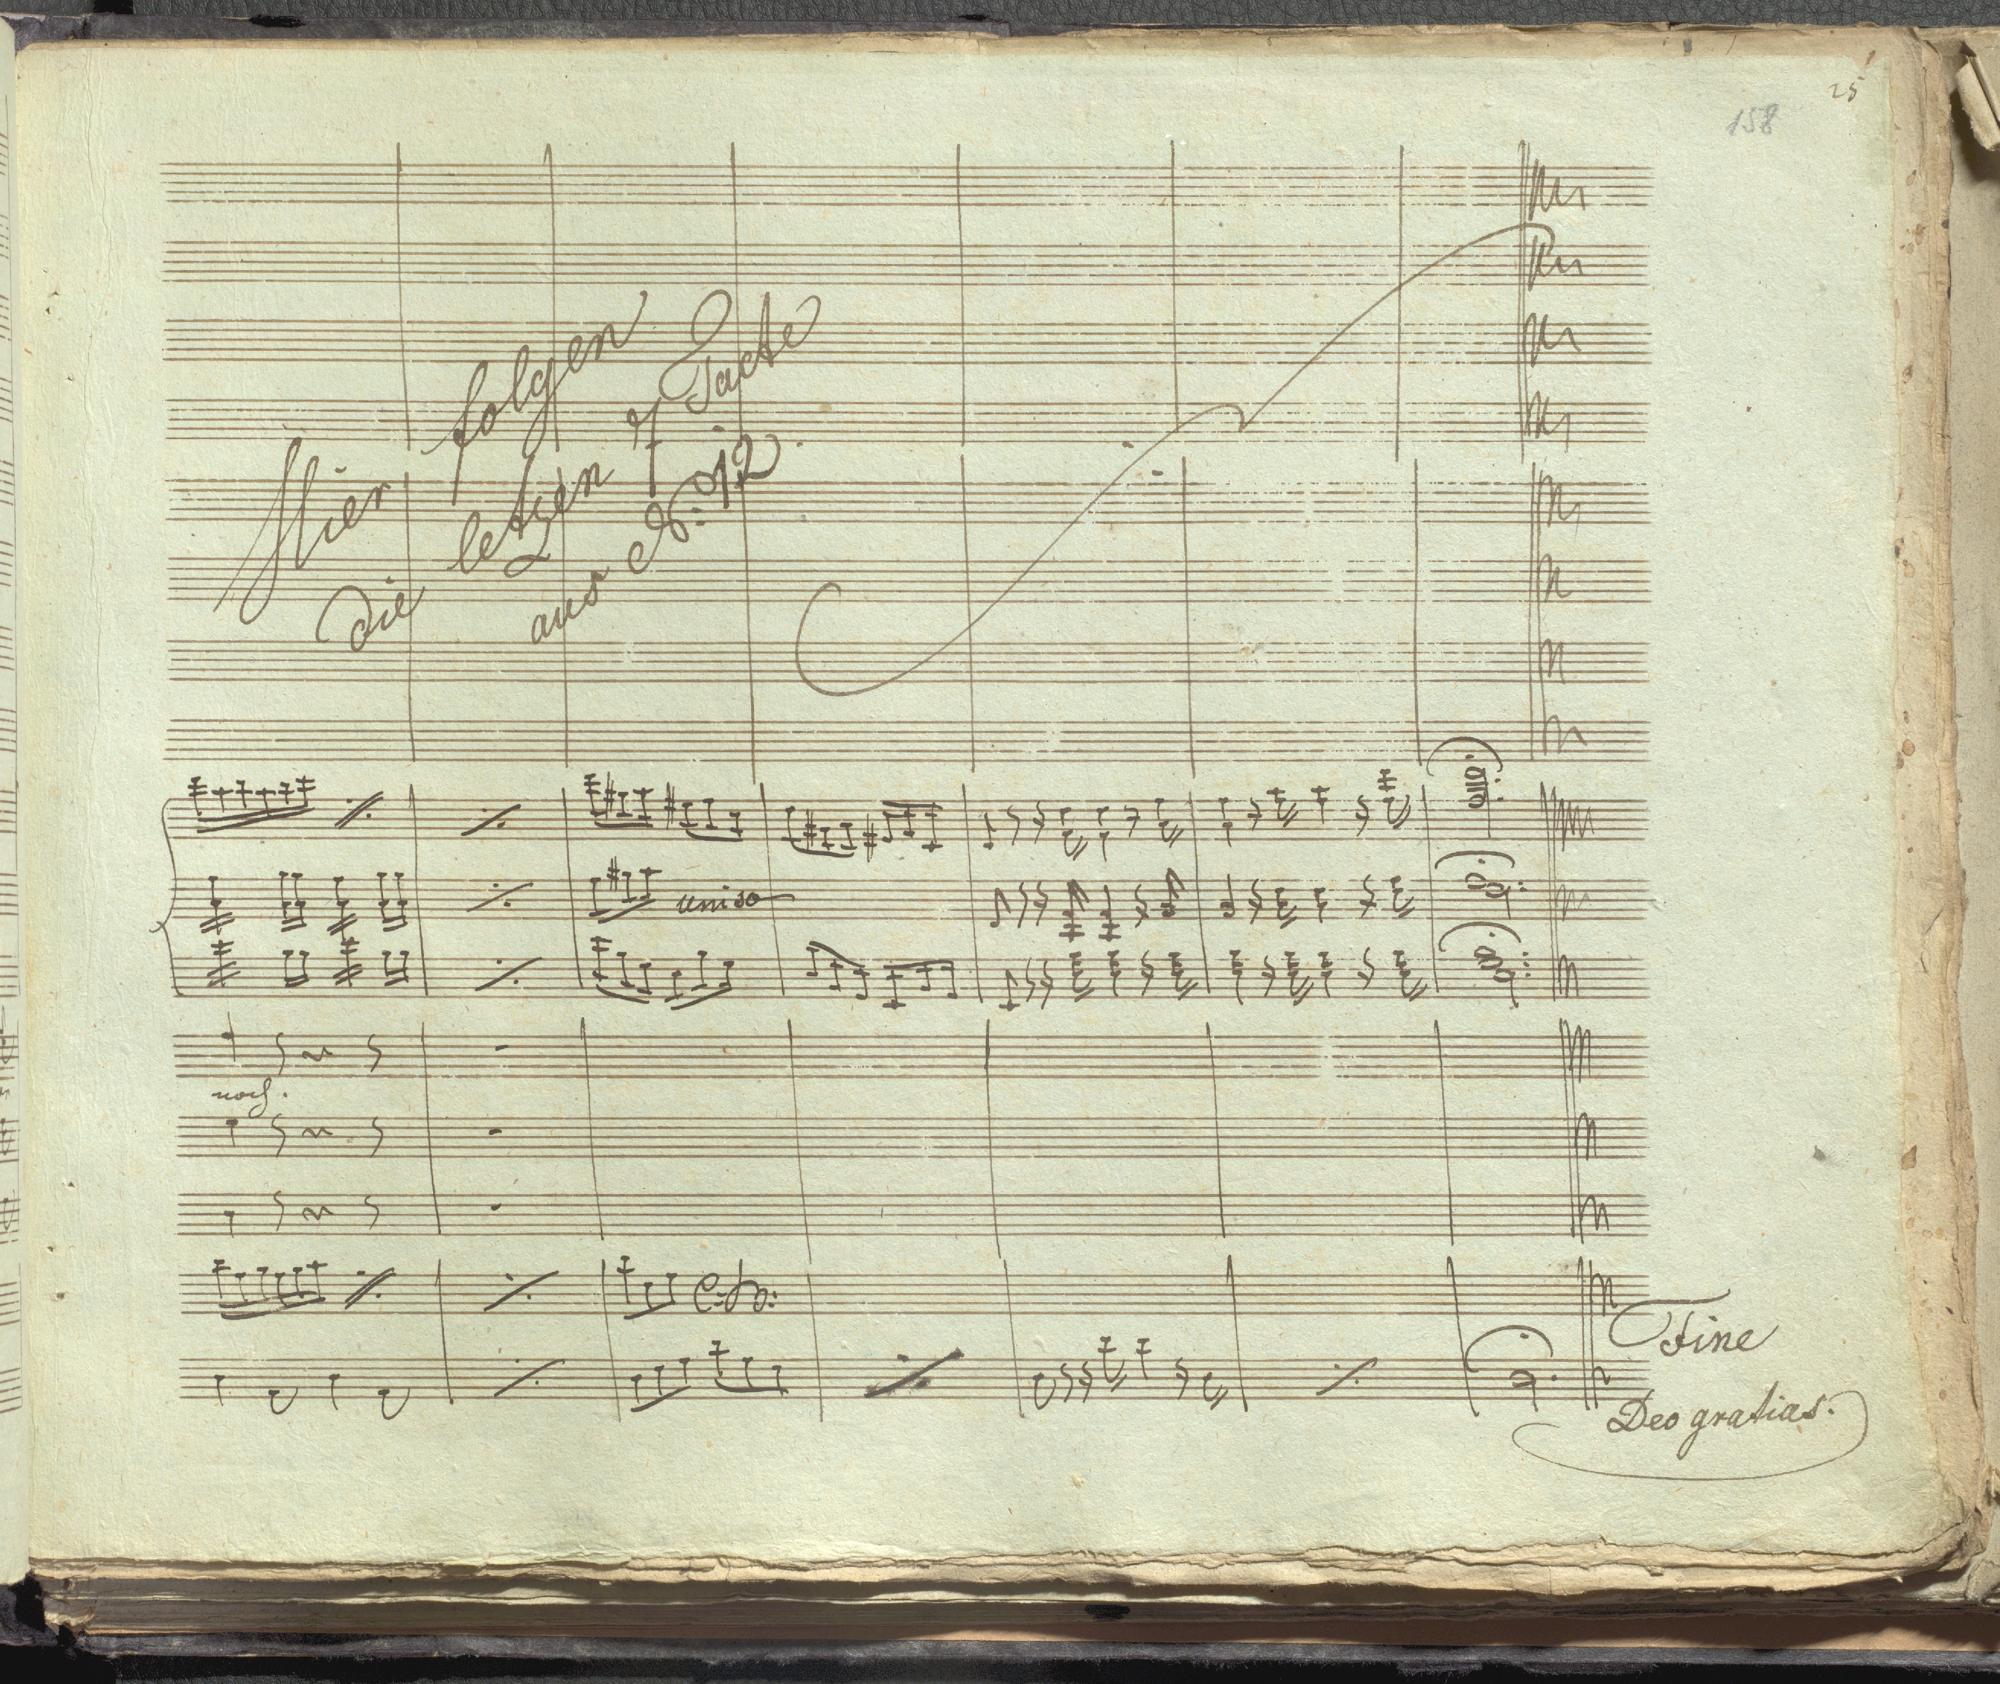 25
158
Hier folgen
die letzen 7 Tacte
aus No: 12.
uniso
noch.
C: B:
Fine
Deo gratias.